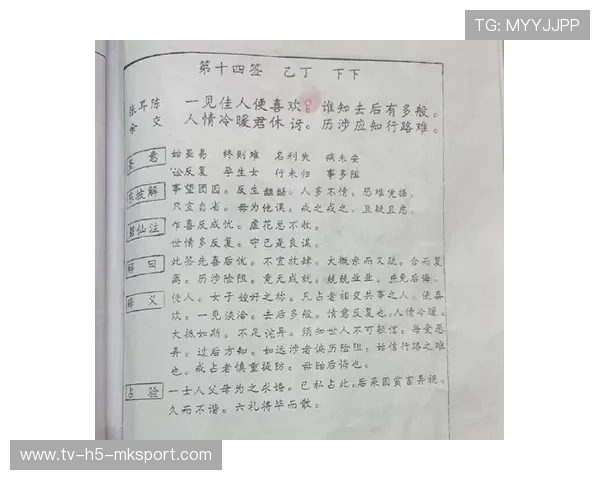 TG: MYYJJPP
第十四签 乙丁 下下
张耳陈
余交
一见佳人便喜欢。谁知去后有多般。
人情冷暖君休讶。历涉应知行路难。
圣意
始虽易 终则难 名利失 病未安
讼反复 孕生女 行未归 事多阻
东坡解
事望团圆。反生龃龉。人多不情。恐难凭据。
只宜自省。毋为他误。戒之戒之。且疑且虑。
碧仙法
乍喜反成忧。虚花总不收。
世情多反复。守已是良谋。
解曰
此签先喜后忧。不宜放肆。大概亲而又疏。合而复
离。历涉险阻。竟无成就。兢兢业业。庶免后悔。
释义
佳人。女子姣好之称。凡占者相交共事之人。便喜
欢。一见浃洽。去后多般。情意反复也。人情冷暖。
大抵如斯。不足诧异。须知世人不可轻信。每受愚
弄。过后方知。如远涉者偏历险阻。始信行路之难
也。戒占者慎重提防。毋贻后悔也。
占验
一士人父母为之求婚。已私占此。后果因贫富异说。
久而不谐。六礼将毕而散。
www.tv-h5-mksport.com/